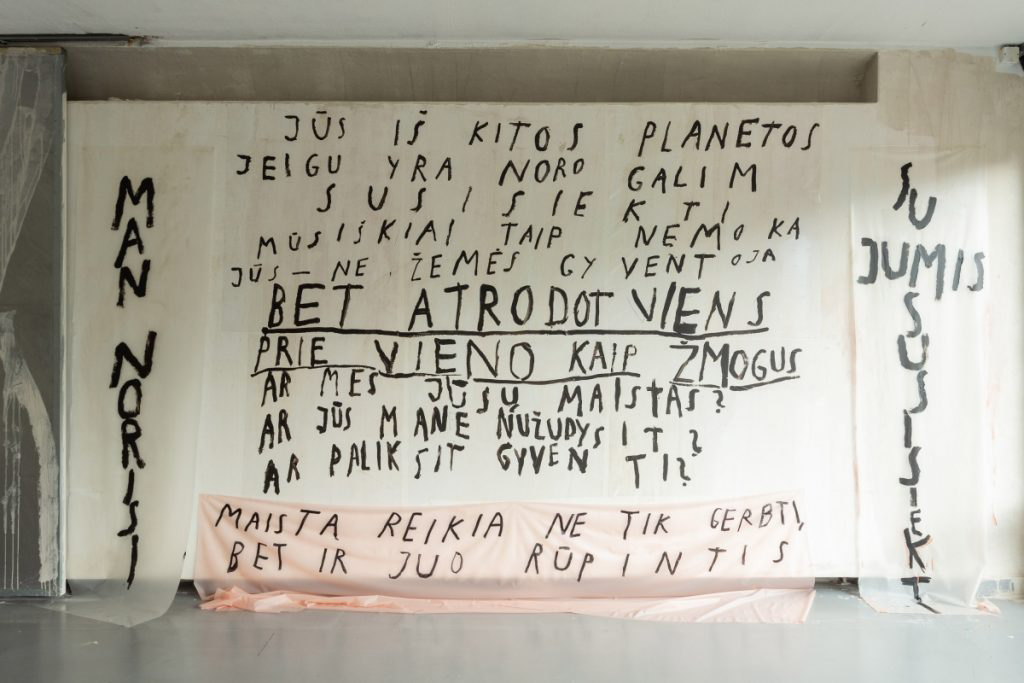 MAN NORISI
JŪS IŠ KITOS PLANETOS
JEIGU YRA NORO GALIM
SUSISIEKTI
MŪSIŠKIAI TAIP NEMOKA
JŪS – NE ŽEMĖS GYVENTOJA
BET ATRODOT VIENS
PRIE VIENO KAIP ŽMOGUS
AR MES JŪSŲ MAISTAS?
AR JŪS MANE NUŽUDYSIT?
AR PALIKSIT GYVENTI?
MAISTA REIKIA NE TIK GERBTI,
BET IR JUO RŪPINTIS
SU
JUMIS
SUSISIEKT